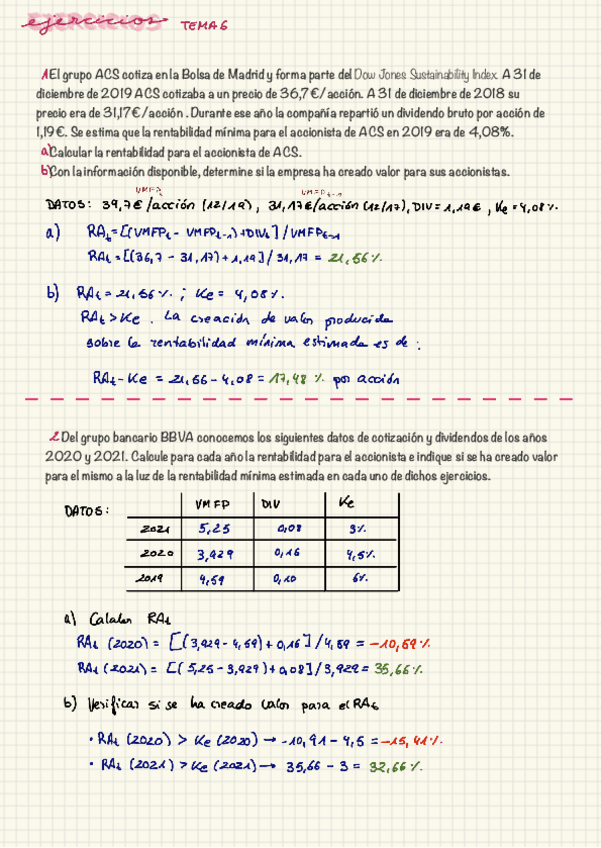 ejercicios TEMA 6
1 El grupo ACS cotiza en la Bolsa de Madrid y forma parte del Dow Jones Sustainability Index. A 31 de
diciembre de 2019 ACS cotizaba a un precio de 36,7€/acción. A 31 de diciembre de 2018 su
precio era de 31,17€/acción . Durante ese año la compañía repartió un dividendo bruto por acción de
1,19€. Se estima que la rentabilidad mínima para el accionista de ACS en 2019 era de 4,08%.
a) Calcular la rentabilidad para el accionista de ACS.
b) Con la información disponible, determine si la empresa ha creado valor para sus accionistas.
VMFPt VMFPt-1
DATOS: 39,7€/acción (12/19) , 31,17€/acción (12/17), DIV = 1,19€ , Ke = 4,08%.
a) RAt = [(VMFPt - VMFPt-1)+DIVt] / VMFPt-1
RAt = [(36,7 - 31,17) + 1,19] / 31,17 = 21,56%
b) RAt = 21,56% ; Ke = 4,08%.
RAt > Ke . La creación de valor producida
sobre la rentabilidad mínima estimada es de :
RAt - Ke = 21,56 - 4,08 = 17,48 % por acción
2 Del grupo bancario BBVA conocemos los siguientes datos de cotización y dividendos de los años
2020 y 2021. Calcule para cada año la rentabilidad para el accionista e indique si se ha creado valor
para el mismo a la luz de la rentabilidad mínima estimada en cada uno de dichos ejercicios.
DATOS: VMFP DIV Ke
2021 5,25 0,08 3%
2020 3,929 0,16 4,5%
2019 4,59 0,10 6%
a) Calcular RAt
RAt (2020) = [(3,929 - 4,59) + 0,16] / 4,59 = -10,59%
RAt (2021) = [(5,25 - 3,929) + 0,08] / 3,929 = 35,66%
b) Verificar si se ha creado valor para el RAt
· RAt (2020) > Ke (2020) → -10,91 - 4,5 = -15,41%
· RAt (2021) > Ke (2021) → 35,66 - 3 = 32,66%